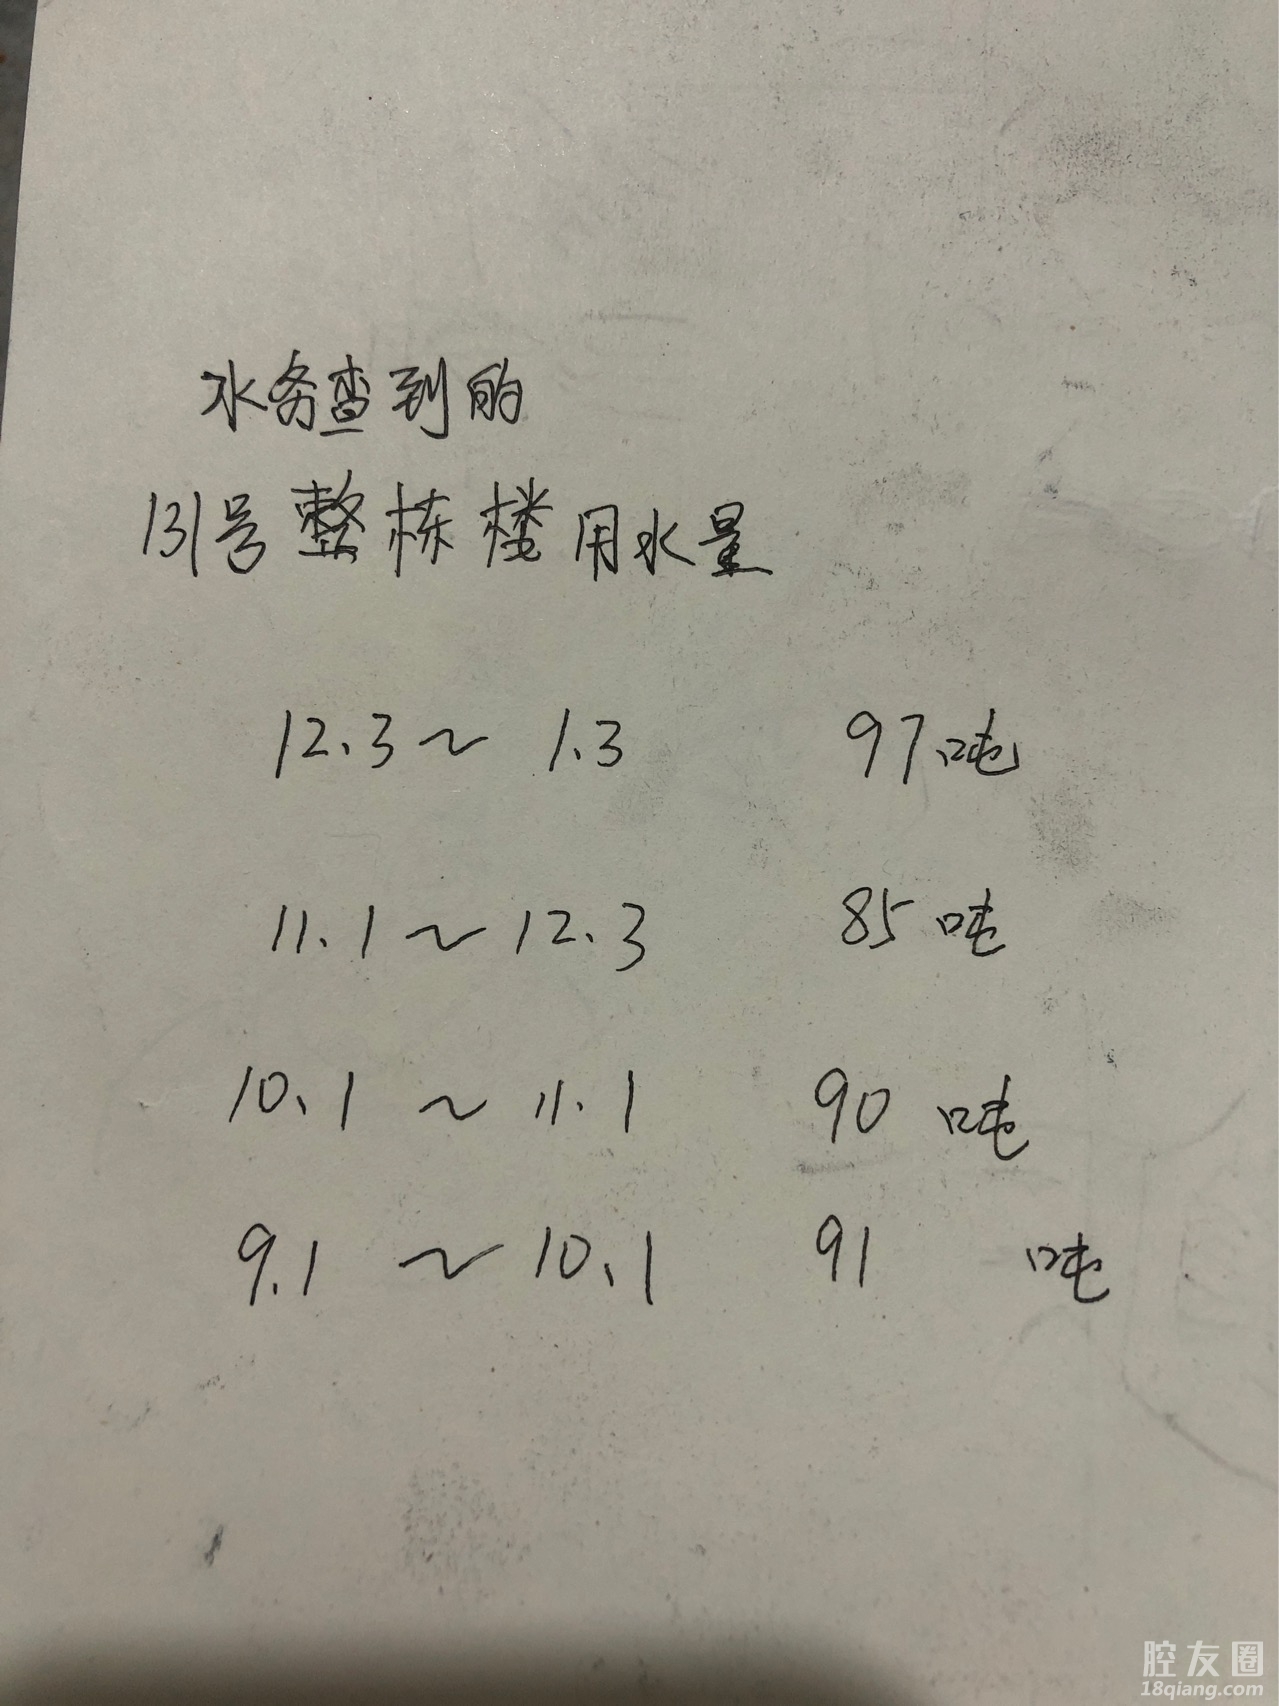 水务查到的
131号整栋楼用水量
12.3～1.3 97吨
11.1～12.3 85吨
10.1～11.1 90吨
9.1～10.1 91吨
腔友圈
18qiang.com